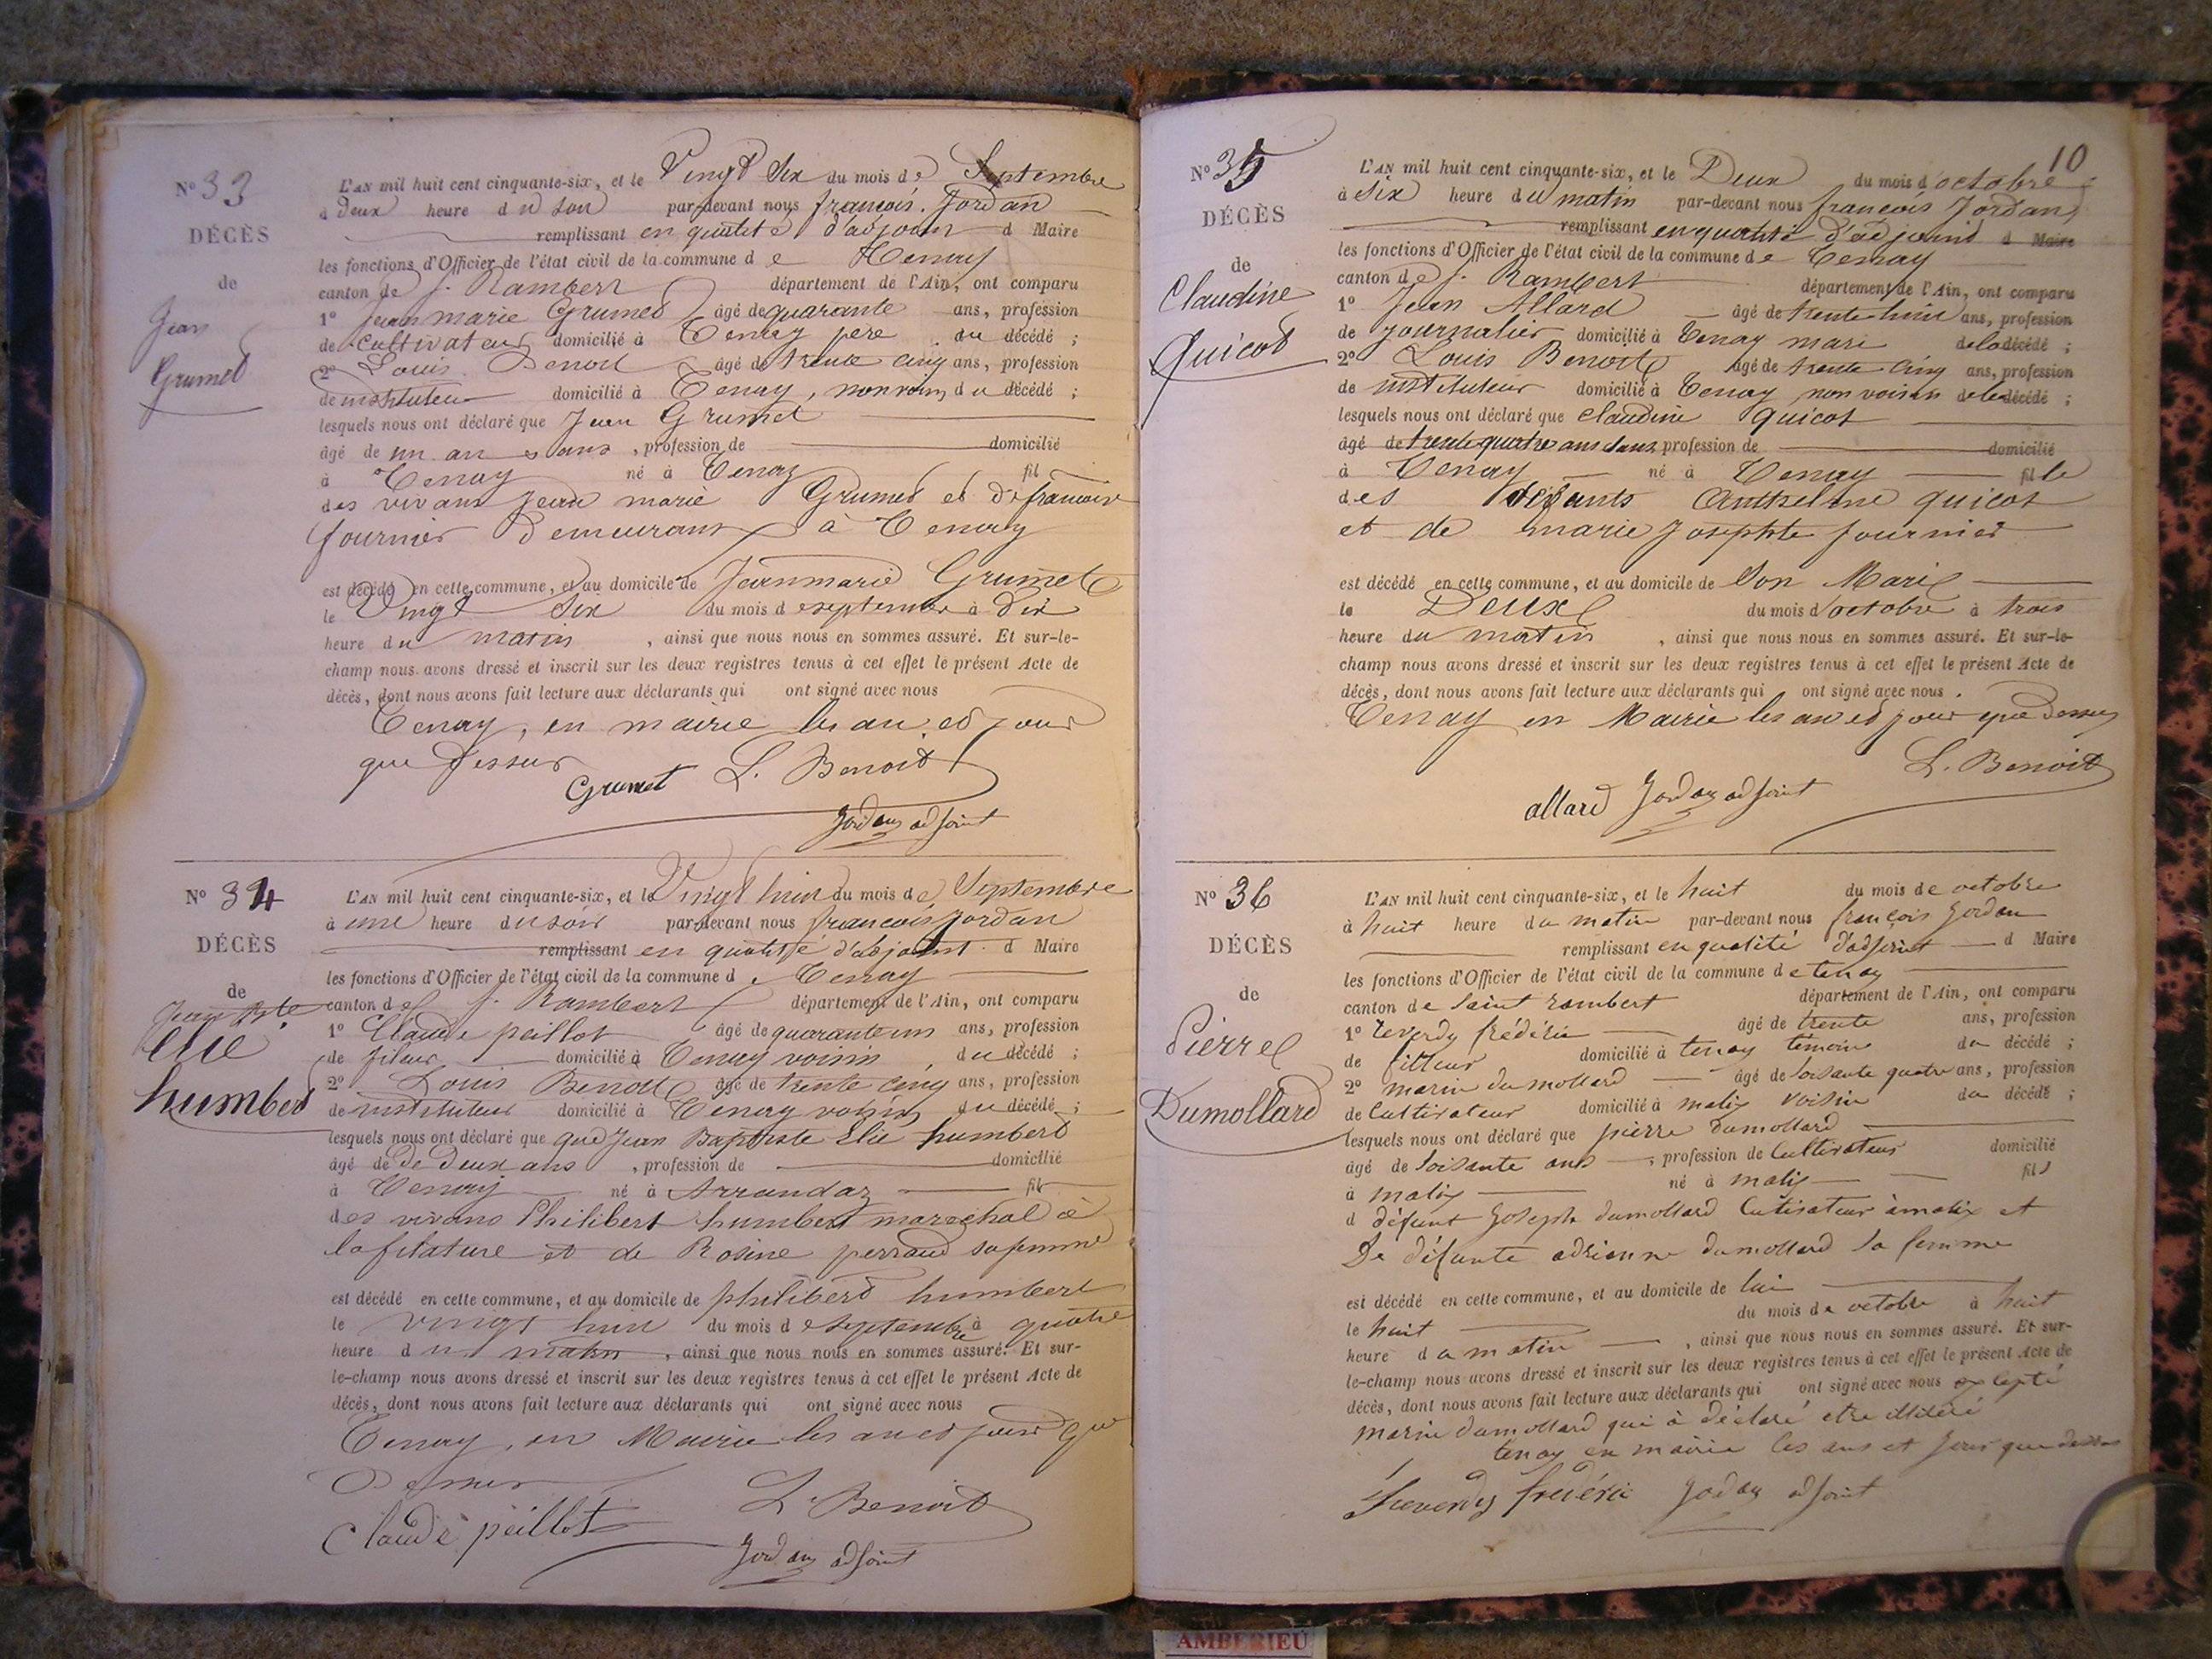 N° 33
DÉCÈS
de
Jean
Grumet
L'AN mil huit cent cinquante-six, et le Vingt Six du mois de Septembre
à Deux heure du Soir par-devant nous françois Jordan
remplissant en qualité d'adjoint d Maire
les fonctions d'Officier de l'état civil de la commune de Tenay
canton de S. Rambert département de l'Ain, ont comparu
1° Jean marie Grumet âgé de quarante ans, profession
de Cultivateur domicilié à Tenay pere du décédé ;
2° Louis Benoit âgé de trente cinq ans, profession
de instituteur domicilié à Tenay, non voisin du décédé ;
lesquels nous ont déclaré que Jean Grumet
âgé de un an , profession de domicilié
à Tenay né à Tenay fil
des vivans Jean marie Grumet et de francoise
fournier Demeurans à Tenay
est décédé en cette commune, et au domicile de Jean marie Grumet
le Vingt Six du mois de septembre à dix
heure du matin , ainsi que nous nous en sommes assuré. Et sur-le-
champ nous avons dressé et inscrit sur les deux registres tenus à cet effet le présent Acte de
décès, dont nous avons fait lecture aux déclarants qui ont signé avec nous
Tenay, en mairie les an et jour
que dessus
Grumet L. Benoit
Jordan adjoint
N° 34
DÉCÈS
de
Jean Bte
Elie
humbert
L'AN mil huit cent cinquante-six, et le Vingt huit du mois de Septembre
à une heure du soir par-devant nous francois Jordan
remplissant en qualité d'adjoint d Maire
les fonctions d'Officier de l'état civil de la commune de Tenay
canton de S. Rambert département de l'Ain, ont comparu
1° Claude peillot âgé de quarante un ans, profession
de fileur domicilié à Tenay voisin du décédé ;
2° Louis Benoit âgé de trente cinq ans, profession
de instituteur domicilié à Tenay voisin du décédé ;
lesquels nous ont déclaré que que Jean Baptiste Elie humbert
âgé de de deux ans , profession de domicilié
à Tenay né à Arrandaz fils
des vivans Philibert humbert marechal à
la filature et de Rosine perraud sa femme
est décédé en cette commune, et au domicile de philibert humbert
le vingt huit du mois de septembre à quatre
heure du matin , ainsi que nous nous en sommes assuré. Et sur-
le-champ nous avons dressé et inscrit sur les deux registres tenus à cet effet le présent Acte de
décès, dont nous avons fait lecture aux déclarants qui ont signé avec nous
Tenay, en Mairie les an et jour que
Dessus
Claude peillot L. Benoit
Jordan adjoint
10
N° 35
DÉCÈS
de
Claudine
Quicot
L'AN mil huit cent cinquante-six, et le Deux du mois d'octobre
à Six heure du matin par-devant nous francois Jordan
remplissant en qualité d'adjoint d Maire
les fonctions d'Officier de l'état civil de la commune de Tenay
canton de S. Rambert département de l'Ain, ont comparu
1° Jean Allard âgé de trente huit ans, profession
de journalier domicilié à Tenay mari de la décédé ;
2° Louis Benoit âgé de trente cinq ans, profession
de instituteur domicilié à Tenay non voisin de la décédé ;
lesquels nous ont déclaré que Claudine Quicot
âgé de trente quatre ans sans profession de domicilié
à Tenay né à Tenay fille
des défunts Anthelme quicot
et de marie Josephte fournier
est décédé en cette commune, et au domicile de Son Mari
le Deux du mois d'octobre à trois
heure du matin , ainsi que nous nous en sommes assuré. Et sur-le-
champ nous avons dressé et inscrit sur les deux registres tenus à cet effet le présent Acte de
décès, dont nous avons fait lecture aux déclarants qui ont signé avec nous .
Tenay en Mairie les an et jour que dessus
L. Benoit
allard Jordan adjoint
N° 36
DÉCÈS
de
Pierre
Dumollard
L'AN mil huit cent cinquante-six, et le huit du mois de octobre
à huit heure du matin par-devant nous françois Jordan
remplissant en qualité d'adjoint d Maire
les fonctions d'Officier de l'état civil de la commune de tenay
canton de Saint rambert département de l'Ain, ont comparu
1° reverdy frédéric âgé de trente ans, profession
de fitteur domicilié à tenay témoin du décédé ;
2° marin dumollard âgé de soisante quatre ans, profession
de Cultivateur domicilié à malix voisin du décédé ;
lesquels nous ont déclaré que pierre dumollard
âgé de soisante ans , profession de Cultivateur domicilié
à malix né à malix fils
d défunt Joseph dumollard Cultivateur à malix et
De défunte adrienne dumollard sa femme
est décédé en cette commune, et au domicile de lui
le huit du mois de octobre à huit
heure du matin , ainsi que nous nous en sommes assuré. Et sur-
le-champ nous avons dressé et inscrit sur les deux registres tenus à cet effet le présent Acte de
décès, dont nous avons fait lecture aux déclarants qui ont signé avec nous excepté
marin dumollard qui à déclaré etre illitéré
tenay en mairie les ans et jour que dessus
reverdy frédéric Jordan adjoint
AMBERIEU